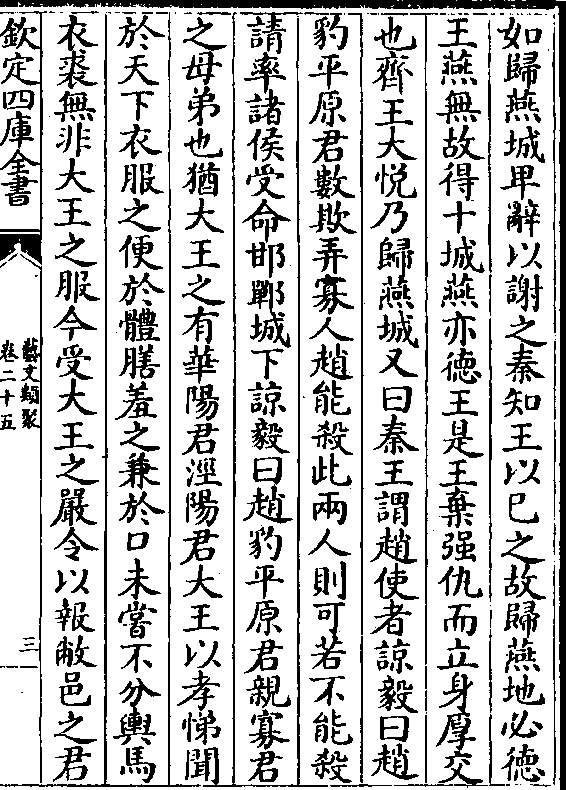 如歸燕城卑辭以謝之秦知王以巳之故歸燕地必徳
王燕無故得十城燕亦徳王是王棄强仇而立身厚交
也齊王大悦乃歸燕城又曰秦王謂趙使者諒毅曰趙
豹平原君數欺弄寡人趙能殺此兩人則可若不能殺
請率諸侯受命邯鄲城下諒毅曰趙豹平原君親寡君
之母弟也猶大王之有華陽君涇陽君大王以孝悌聞
於天下衣服之便於體膳羞之兼於口未嘗不分輿馬
衣裘無非大王之服今受大王之嚴令以報敝邑之君
欽定四庫全書
藝文類聚
卷二十五
三